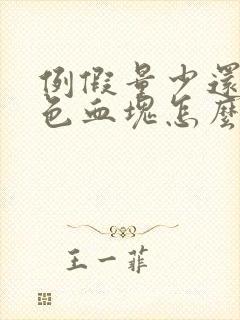 例假量少還
色血塊怎麼
王一菲